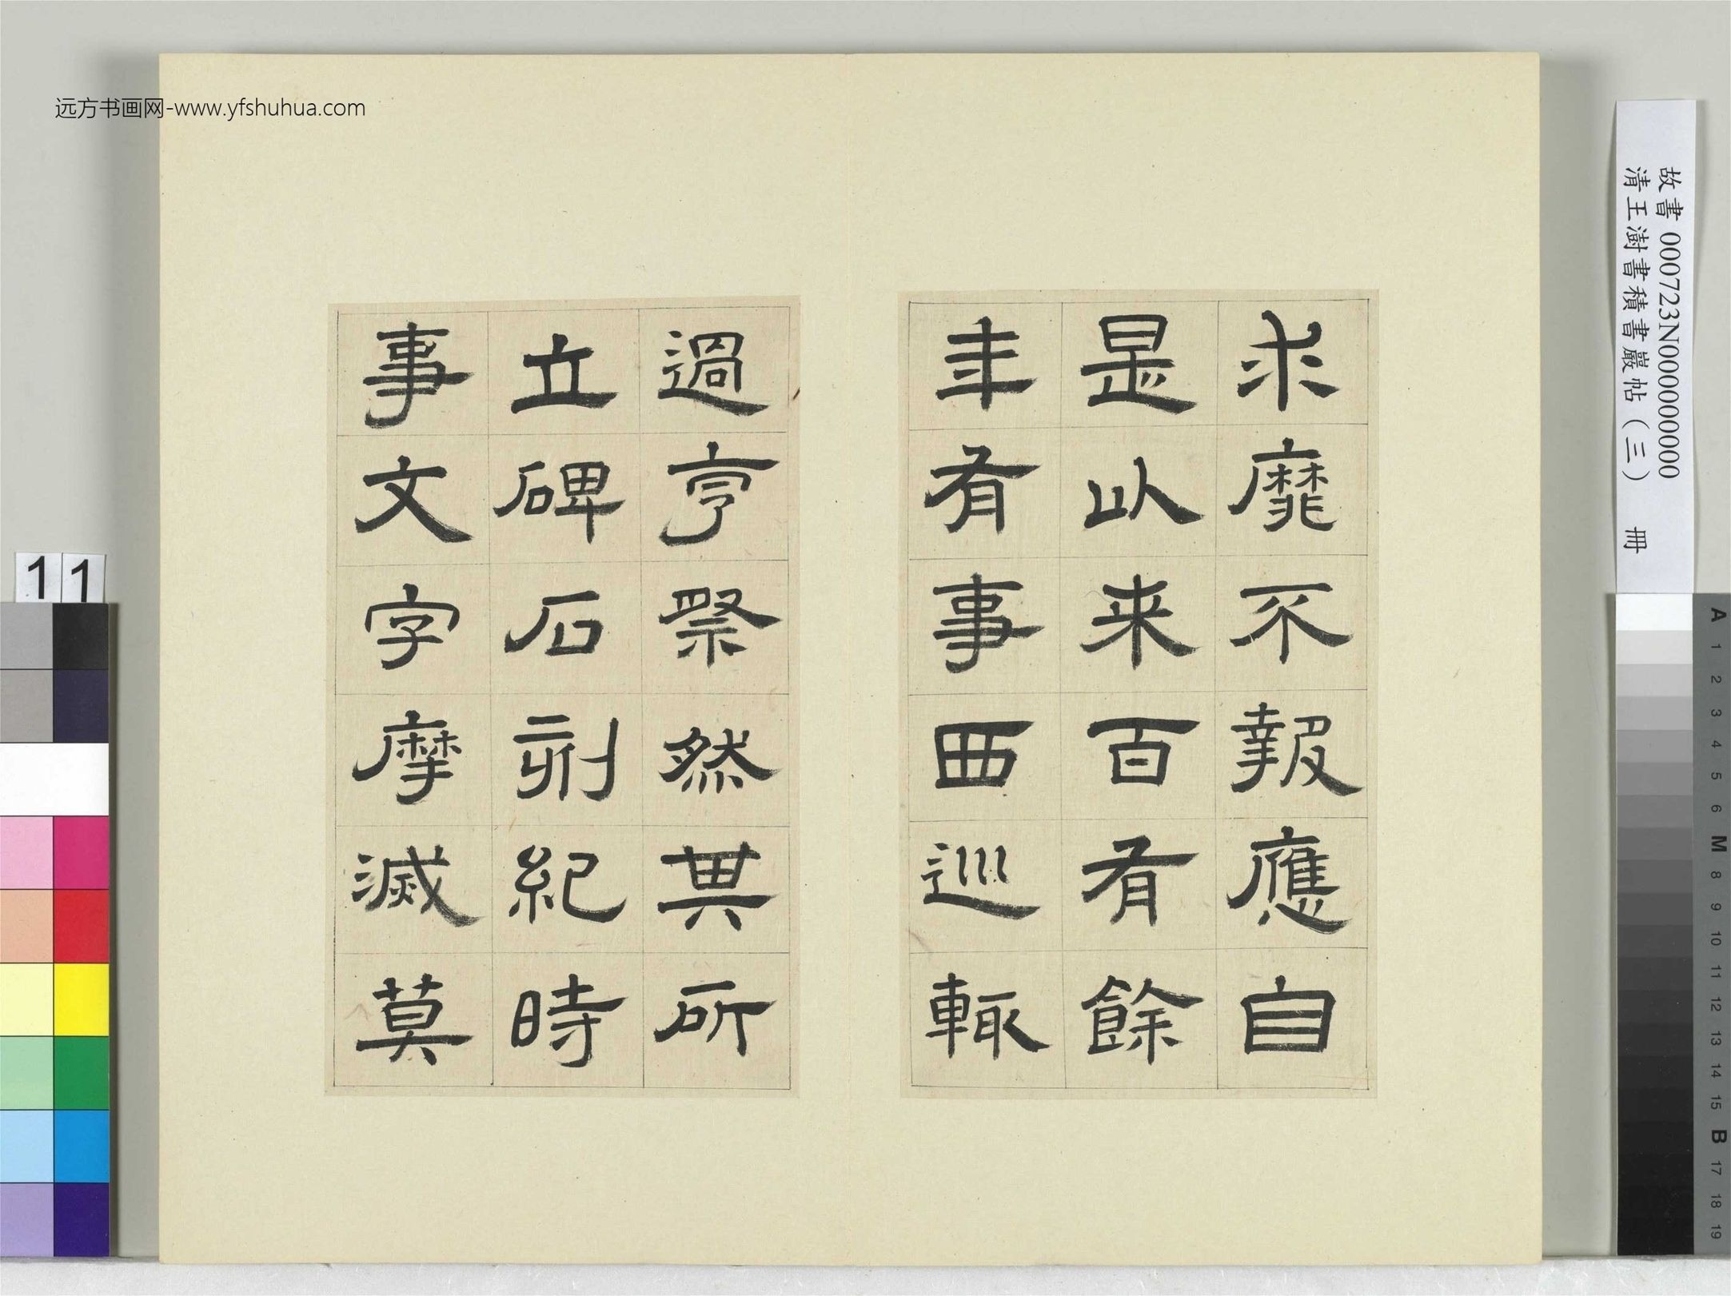 远方书画网-www.yfshuhua.com
求靡不報應自
是以来百有餘
年有事西巡輒
過亨祭然其所
立碑石刻紀時
事文字摩滅莫
故書 000723N000000000
清王澍書積書巖帖(三) 冊
11
A
1
2
3
4
5
6
M
8
9
10
11
12
13
14
15
B
17
18
19